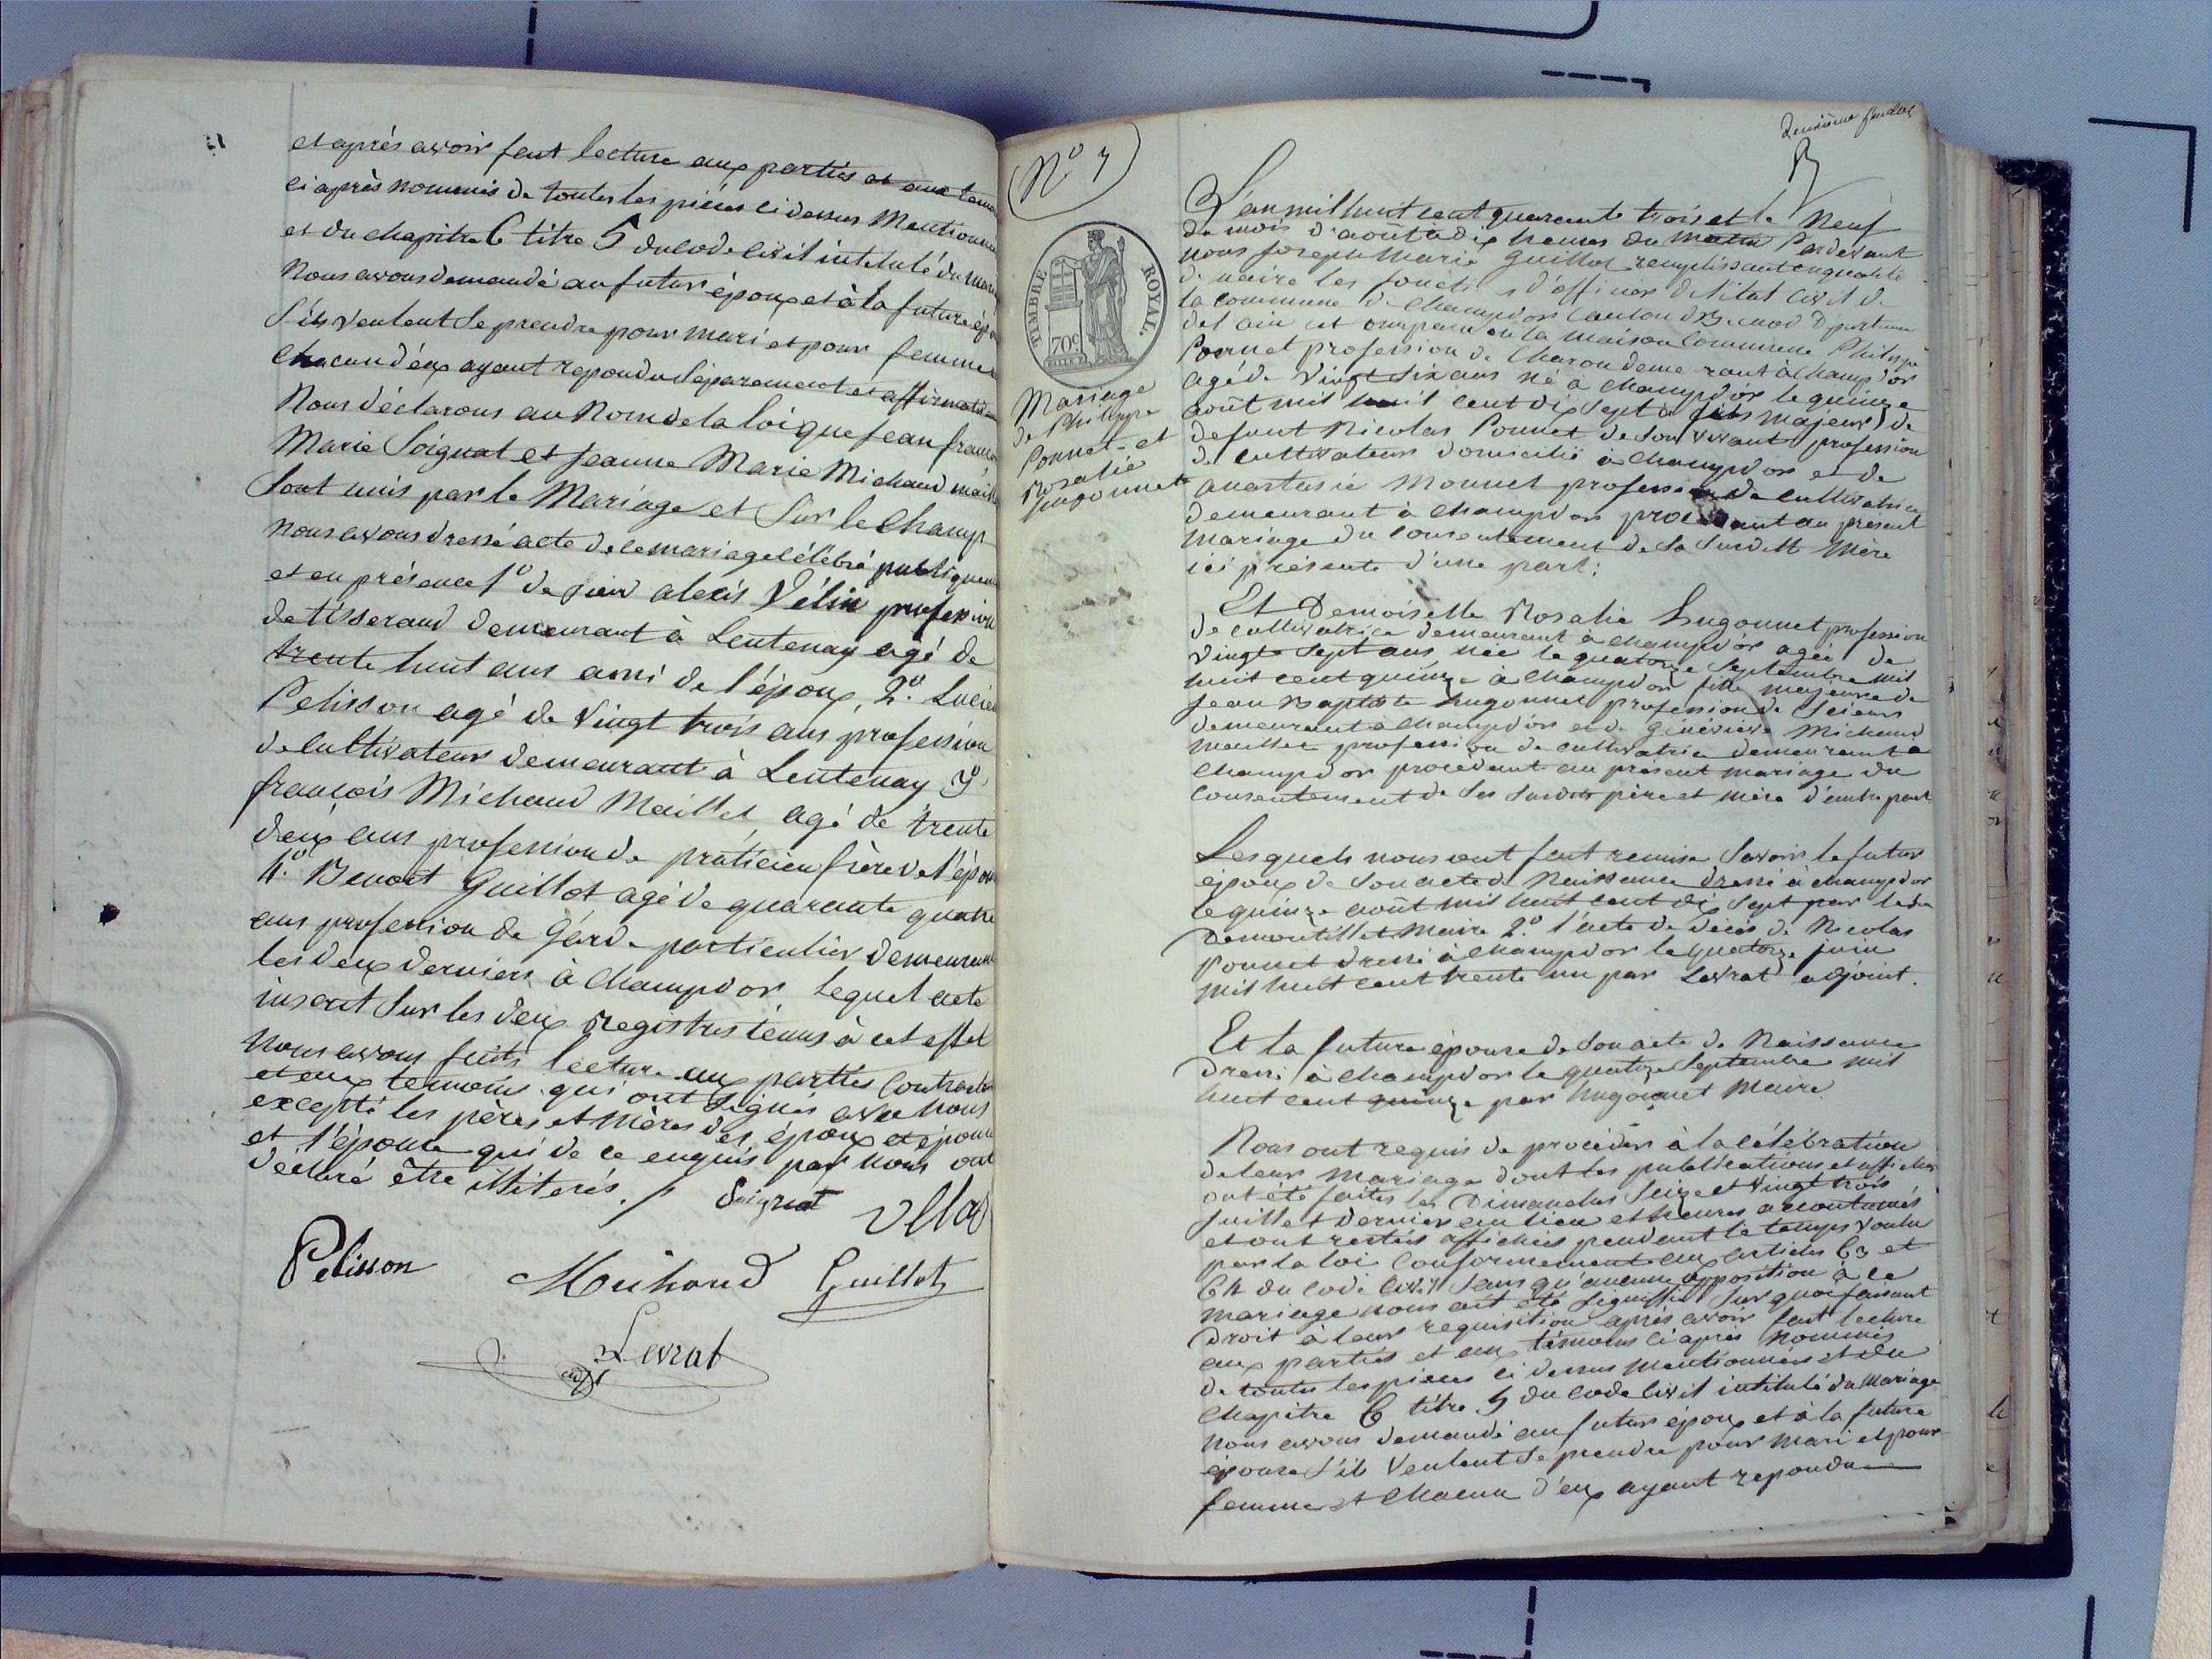 et après avoir fait lecture aux parties et aux temoins
ci après nommés de toutes les pièces ci dessus Mentionnées
et du chapitre 6 titre 5 du code civil intitulé du mariage
Nous avons demandé au futur époux et à la future épouse
S'ils veulent se prendre pour mari et pour femme
chacun d'eux ayant repondu séparement et affirmativement
Nous déclarons au Nom de la loi que jean françois
Marie Soignat et jeanne Marie Michaud maillet
Sont unis par le Mariage et Sur le champ
nous avons dressé acte de ce mariage célébré publiquement
et en présence 1º de alexis Vélin profession
de tisserand demeurant à Lentenay agé de
trente huit ans ami de l'époux, 2º. Lucien
Pelisson agé de vingt trois ans profession
de cultivateur demeurant à Lentenay 3º
françois Michaud Maillet agé de trente
deux ans profession de praticien frère de l'épouse
4º. Benoît Guillot agé de quarante quatre
ans profession de Garde particulier demeurant
les deux derniers à champdor, lequel acte
inscrit Sur les deux Registres tenus à cet effet
Nous avons faits lecture aux parties Contractantes
et aux temoins qui ont signés avec nous
excepté les pères et mères des époux et épouse
et l'épouse qui de ce enquis par nous ont
déclaré être illiterés. /. Soignat
Pelisson Michaud Guillot
Levrat
adjt
Deuxième feuillet
(Nº 7)
TIMBRE ROYAL.
709
Mariage
de Philippe
Ponnet et
Rosalie
hugonnet
L'an mil huit cent quarante trois et le Neuf
du mois d'août à dix heures du matin Pardevant
nous joseph Marie Guillot remplissant en qualité
de maire les fonctions d'officier de l'état civil de
la commune de champdor canton de Brenod Département
de l'ain est comparu en la maison commune Philippe
Ponnet profession de charon demeurant à champdor
agé de vingt six ans né à champdor le quinze
août mil huit cent dix sept fils majeur de
defunt Nicolas Ponnet de son vivant profession
de cultivateur domicilié à champdor et de
anastasie Monnet profession de cultivatrice
demeurant à champdor procedant au présent
mariage du consentement de sa susditte Mère
ici présente d'une part;
Et Demoiselle Rosalie hugonnet profession
de cultivatrice demeurant à champdor agée de
vingt sept ans née le quatorze septembre mil
huit cent quinze à champdor fille majeure de
jean Baptiste hugonnet profession de Scieur
demeurant à champdor et de Géneviève Michaud
maillet profession de cultivatrice demeurant à
champdor procedant au présent mariage du
consentement de ses susdits père et mère d'autre part
Lesquels nous ont fait remise Savoir le futur
époux de son acte de Naissance dressé à champdor
le quinze août mil huit cent dix sept par
Demontillet Maire 2º. l'acte de décès de Nicolas
Ponnet dressé à champdor le quatorze juin
mil huit cent trente un par Levrat adjoint.
Et la future épouse de son acte de Naissance
dressé à champdor le quatorze Septembre mil
huit cent quinze par hugonnet Maire.
Nous ont requis de procéder à la célébration
de leur mariage dont les publications et affiches
ont été faites les Dimanches seize et vingt trois
juillet dernier au lieu et heures accoutumés
et ont restés affichés pendant le temps voulu
par la loi conformement aux articles 63 et
64 du code civil sans qu'aucune opposition à ce
mariage nous ait été signiffié sur quoi faisant
droit à leur requisition après avoir fait lecture
aux parties et aux témoins ci après nommés
de toutes les pièces ci dessus mentionnées et du
chapitre 6 titre 5 du code civil intitulé du Mariage
nous avons demandé au futur époux et à la future
épouse s'ils veulent se prendre pour mari et pour
femme et chacun d'eux ayant repondu